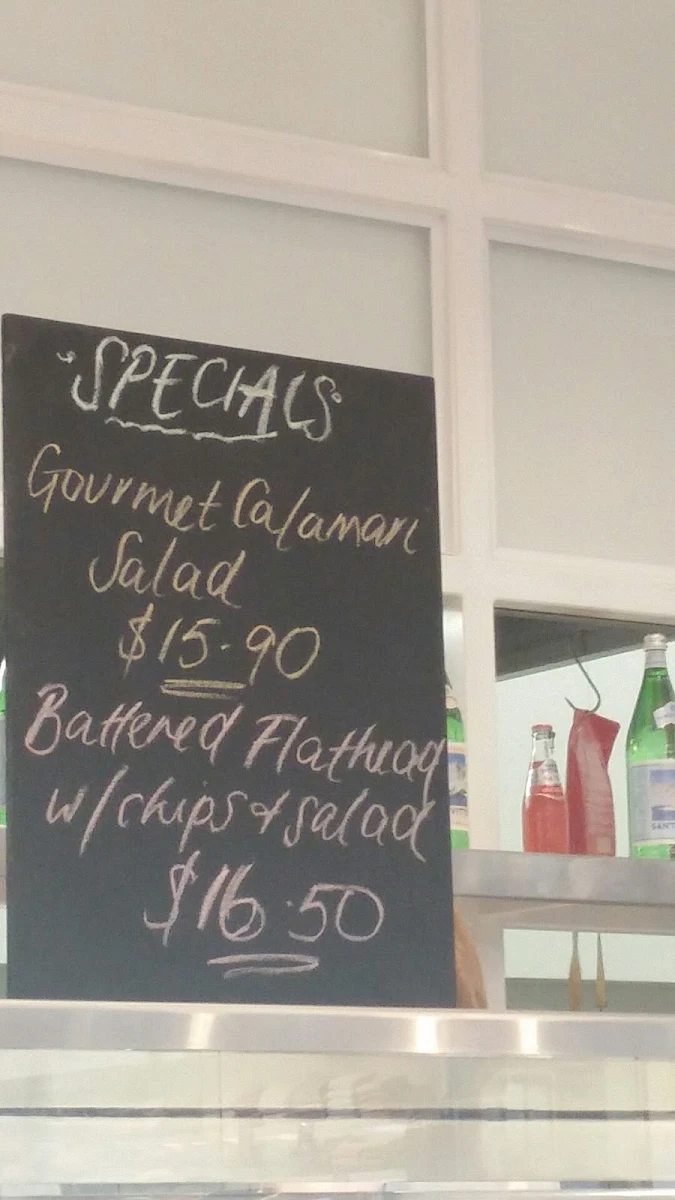 SPECIALS
Gourmet Calamari
Salad
$15.90
Battered Flathead
w/chips & salad
$16.50
SANT